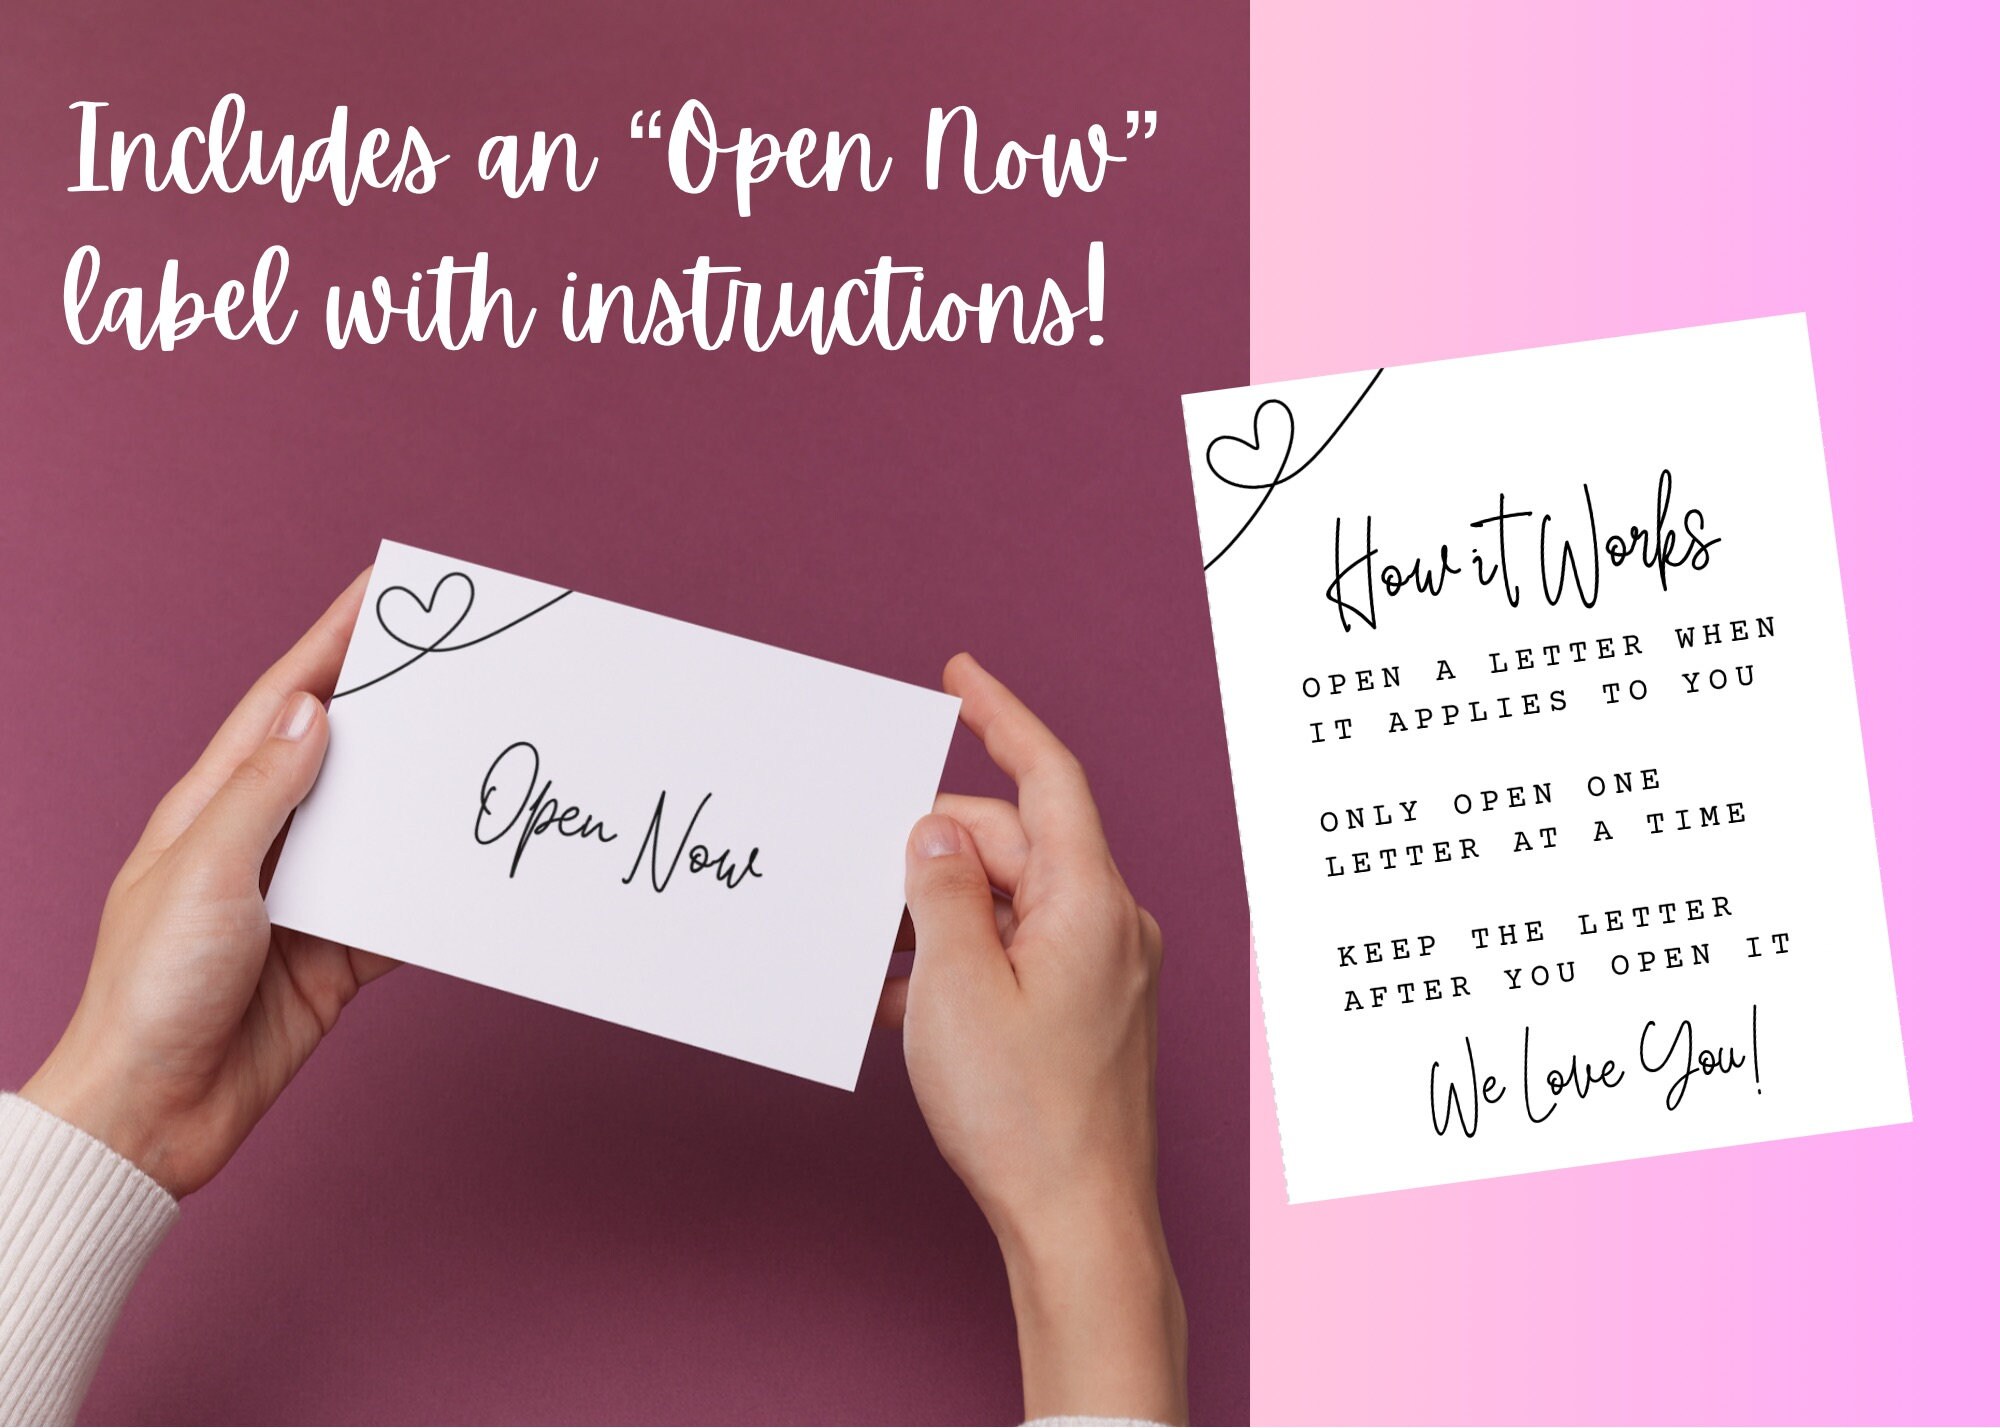 Includes an “Open Now”
label with instructions!
Open Now
How it Works
OPEN A LETTER WHEN
IT APPLIES TO YOU
ONLY OPEN ONE
LETTER AT A TIME
KEEP THE LETTER
AFTER YOU OPEN IT
We Love You!